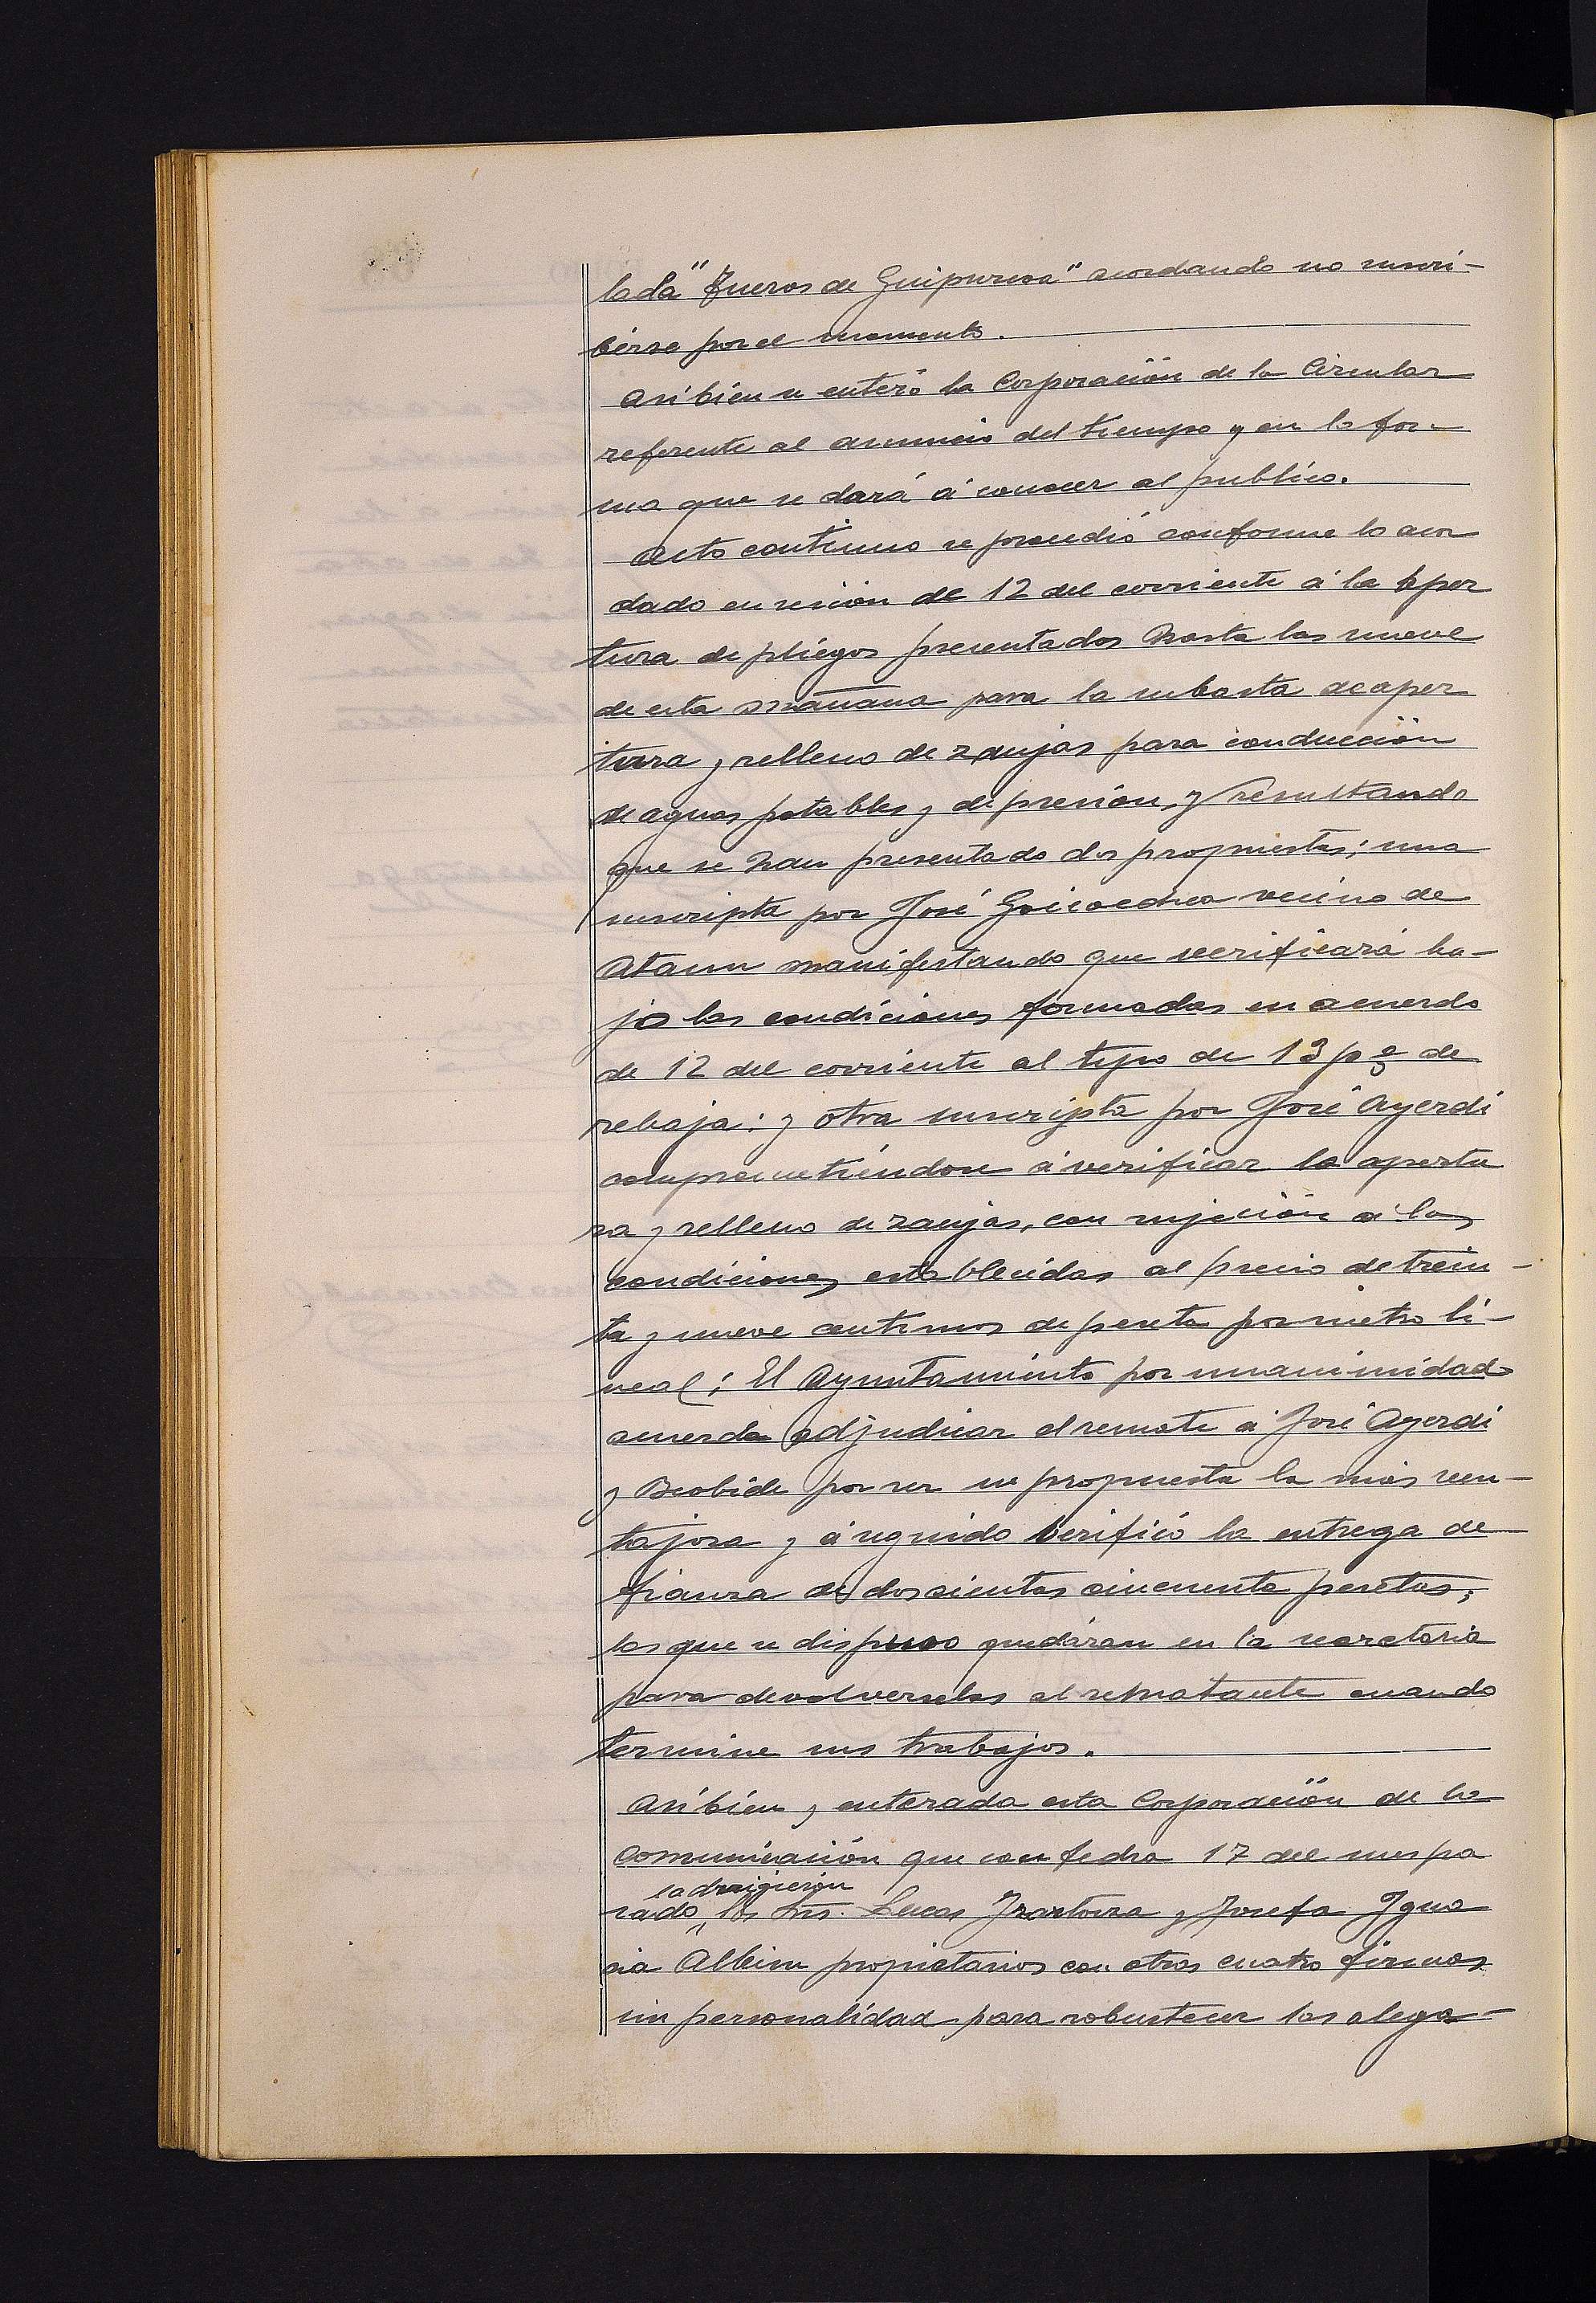 lada "Fueros de Guipuzcoa" acordando no suscri-
birse por el momento.
Asi bien se enteró la Corporación de la Circular
referente al anuncio del tiempo y en la for-
ma que se dará á conocer al publico.
Acto continuo se procedió conforme lo acor
dado en sesión de 12 del corriente á la aper
tura de pliegos presentados hasta las nueve
de esta mañana para la subasta de aper
tura y relleno de zanjas para conducción
de aguas potables y de presión, y resultando
que se han presentado dos propuestas; una
suscripta por José Goicoechea vecino de
Ataun manifestando que verificará ba-
jo las condiciones formadas en acuerdo
de 12 del corriente al tipo de 13 p% de
rebaja: y otra suscripta por José Ayerdi
comprometiéndose á verificar la apertu
ra y relleno de zanjas, con sujeción á las
condiciones establecidas al precio de trein-
ta y nueve centimos de peseta por metro li-
neal; El Ayuntamiento por unanimidad
acuerda adjudicar el remate á José Ayerdi
y Beobide por ser su propuesta la más ven-
tajosa y á seguido verificó la entrega de
fianza de doscientas cincuenta pesetas;
las que se dispuso quedáran en la secretaria
para devolverselas al rematante cuando
termine sus trabajos.
Asi bien y enterada esta Corporación de la
Comunicación que con fecha 17 del mes pa
la dirigierón
sado los Srs. Lucas Irastorza y Josefa Igna
cia Albisu propietarios con otras cuatro firmas
sin personalidad para robustecer las alega-